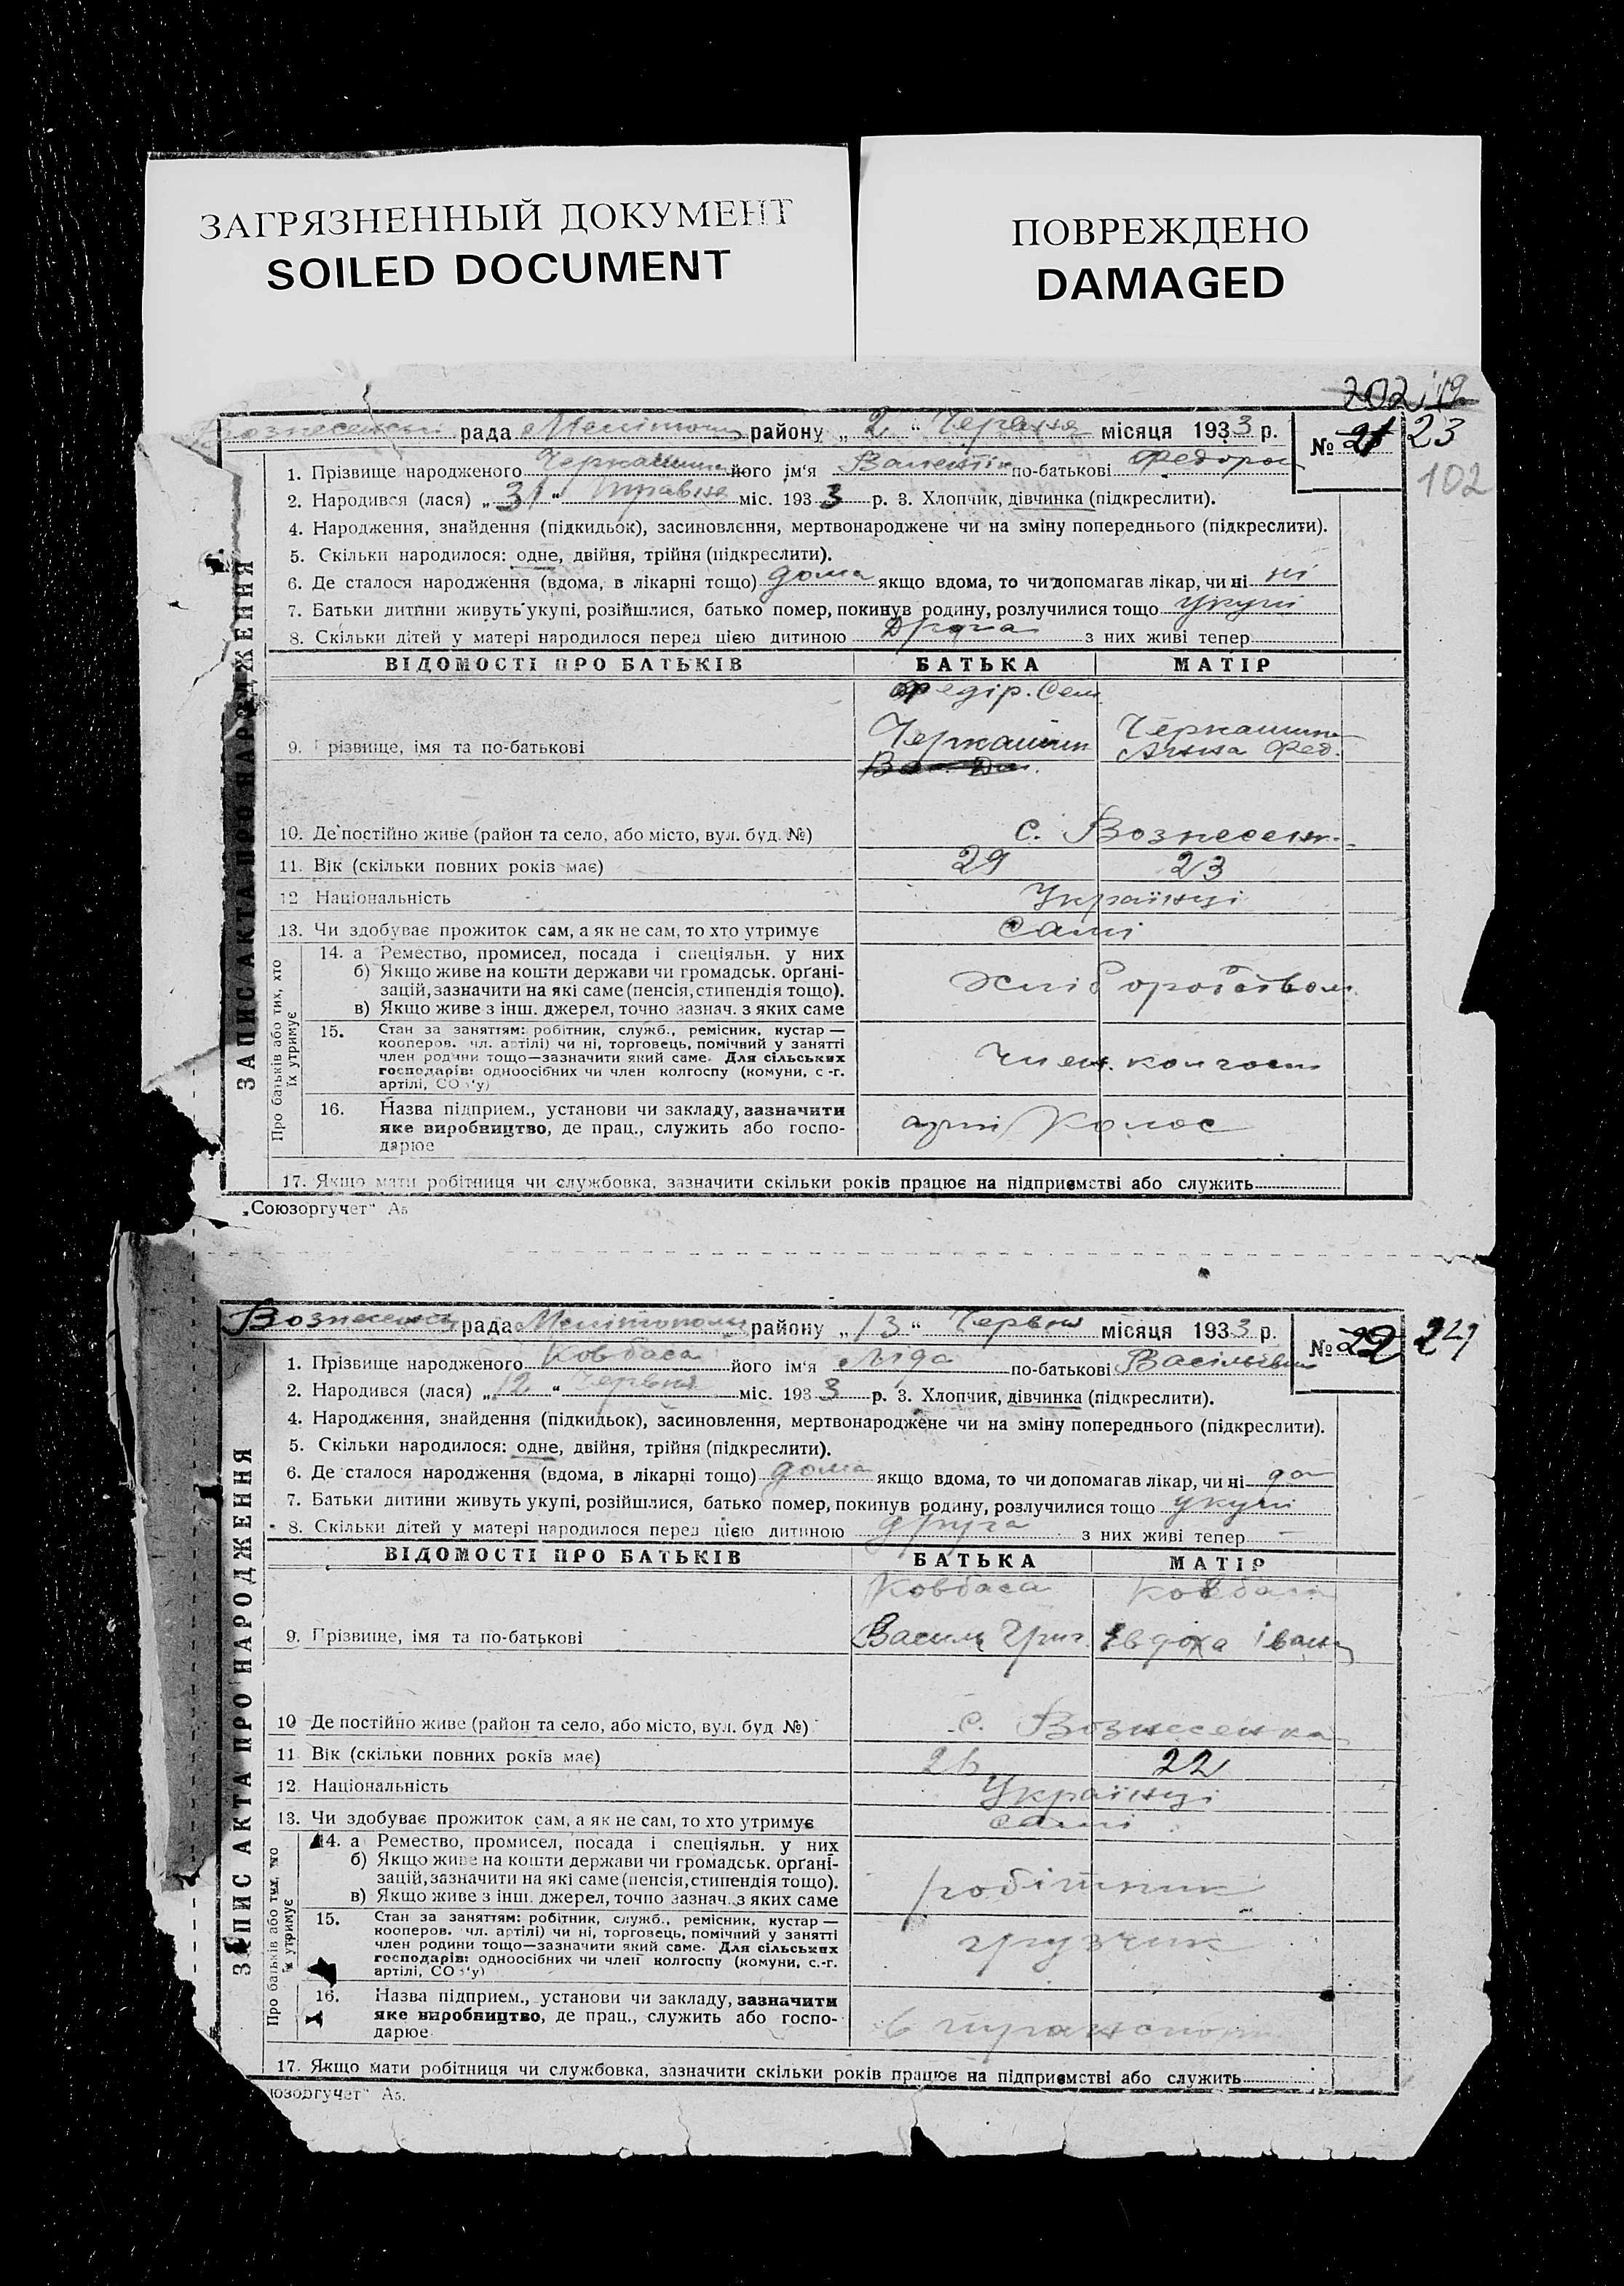 ЗАГРЯЗНЕННЫЙ ДОКУМЕНТ
SOILED DOCUMENT
ПОВРЕЖДЕНО
DAMAGED
202
рада Мелітопол району „ 2 “ Червня місяця 193 3 р.
№ 21 23
102
1. Прізвище народженого Черкашин його ім‘я Валентін по-батькові Федоров
2. Народився (лася) „ 31 “ травня міс. 193 3 р. 3. Хлопчик, дівчинка (підкреслити).
4. Народження, знайдення (підкидьок), засиновлення, мертвонароджене чи на зміну попереднього (підкреслити).
5. Скільки народилося: одне, двійня, трійня (підкреслити).
6. Де сталося народження (вдома, в лікарні тощо) дома якщо вдома, то чи допомагав лікар, чи ні ні
7. Батьки дитини живуть укупі, розійшлися, батько помер, покинув родину, розлучилися тощо укупі
8. Скільки дітей у матері народилося перед цією дитиною Друга з них живі тепер
ВІДОМОСТІ ПРО БАТЬКІВ БАТЬКА МАТІР
Федір. Сем
9. Прізвище, імя та по-батькові Черкашин Черкашина
Анна Фед.
10. Де постійно живе (район та село, або місто, вул. буд. №) с. Вознесен.
11. Вік (скільки повних років має) 29 23
12 Національність Українці
13. Чи здобуває прожиток сам, а як не сам, то хто утримує Самі
14. а Ремество, промисел, посада і спеціяльн. у них
б) Якщо живе на кошти держави чи громадськ. орґані-
зацій, зазначити на які саме (пенсія, стипендія тощо). Хліборобством
в) Якщо живе з інш. джерел, точно зазнач. з яких саме
15. Стан за заняттям: робітник, служб., ремісник, кустар —
кооперов. чл. артілі) чи ні, торговець, помічний у занятті
член родини тощо—зазначити який саме. Для сільських Член. колгосп
господарів: одноосібних чи член колгоспу (комуни, с -г.
артілі, СО з'у)
16. Назва підприем., установи чи закладу, зазначити
яке виробництво, де прац., служить або госпо- Колос
дарює
17. Якщо мати робітниця чи службовка, зазначити скільки років працює на підприємстві або служить
ЗАПИС АКТА ПРО НАРОДЖЕННЯ
Про батьків або тих, хто
їх утримує
„Союзоргучет“ А5
Вознесенск рада Мелітополь району „ 13 “ Червня місяця 193 3 р.
№ 22 24
1. Прізвище народженого Ковбаса його ім‘я Ліда по-батькові Васільівна
2. Народився (лася) „ 12 “ червня міс. 193 3 р. 3. Хлопчик, дівчинка (підкреслити).
4. Народження, знайдення (підкидьок), засиновлення, мертвонароджене чи на зміну попереднього (підкреслити).
5. Скільки народилося: одне, двійня, трійня (підкреслити).
6. Де сталося народження (вдома, в лікарні тощо) дома якщо вдома, то чи допомагав лікар, чи ні да
7. Батьки дитини живуть укупі, розійшлися, батько помер, покинув родину, розлучилися тощо укупі
8. Скільки дітей у матері народилося перед цією дитиною друга з них живі тепер —
ВІДОМОСТІ ПРО БАТЬКІВ БАТЬКА МАТІР
Ковбаса Ковбаса
9. Прізвище, імя та по-батькові Василь Григ. Евдоха Іван
10 Де постійно живе (район та село, або місто, вул. буд №) с. Вознесенка
11. Вік (скільки повних років має) 26 22
12. Національність Українці
13. Чи здобуває прожиток сам, а як не сам, то хто утримує самі
14. а Ремество, промисел, посада і спеціяльн. у них
б) Якщо живе на кошти держави чи громадськ. орґані-
зацій, зазначити на які саме (пенсія, стипендія тощо). робітник
в) Якщо живе з інш. джерел, точно зазнач. з яких саме
15. Стан за заняттям: робітник, служб., ремісник, кустар —
кооперов. чл. артілі) чи ні, торговець, помічний у занятті
член родини тощо—зазначити який саме. Для сільських грузчик
господарів: одноосібних чи член колгоспу (комуни, с.-г.
артілі, СО з'у)
16. Назва підприем., установи чи закладу, зазначити
яке виробництво, де прац., служить або госпо- в транспорті
дарює
17. Якщо мати робітниця чи службовка, зазначити скільки років працює на підприємстві або служить
ЗАПИС АКТА ПРО НАРОДЖЕННЯ
Про батьків або тих, хто
їх утримує
юзоргучет“ А5.